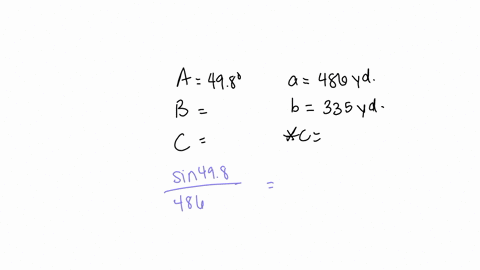 A = 49.8° a = 486 yd.
B = b = 335 yd.
C = *c =
sin 49.8 / 486 =